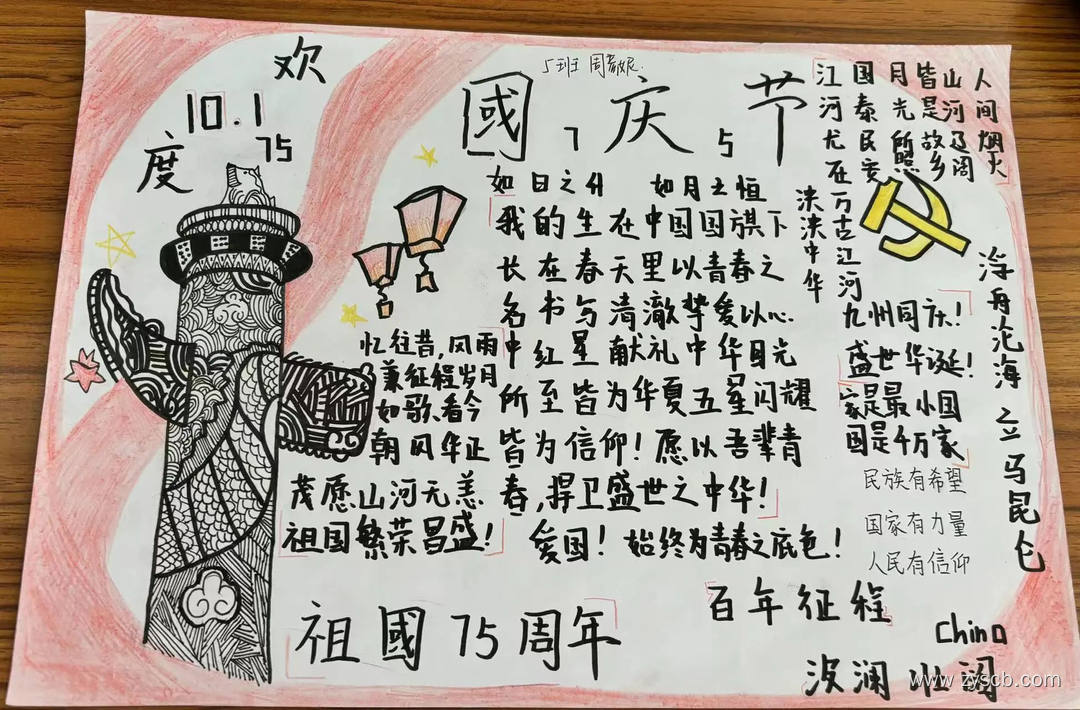 欢
10.1
度
75
5班 周
國庆节
7 5
如日之升 如月之恒
我的生在中国国旗下
长在春天里以青春之
名书与清澈挚爱以心
中红星献礼中华目光
所至皆为华夏五星闪耀
皆为信仰！愿以吾辈青
春，捍卫盛世之中华！
爱国！始终为青春之底色！
忆往昔，风雨
兼征程岁月
如歌.看今
朝风华正
茂愿山河无恙
祖国繁荣昌盛！
人间烟火
山河辽阔
皆是故乡
月光所照
国泰民安
江河尤在
万古江河
泱泱中华
九州同庆！
盛世华诞！
家是最小国
国是千万家
民族有希望
国家有力量
人民有信仰
海舟沦海 立马昆仑
祖國75周年
百年征程
China
波澜壮阔
www.zyscb.com